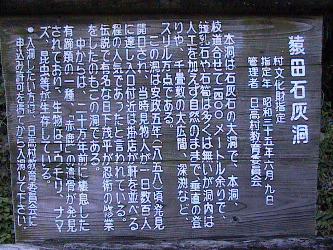 猿田石灰洞
村文化財指定
指定年 昭和三十五年六月九日
管理者 日高村教育委員会
本洞は石灰石の大洞で、本洞、
枝道合せて一四〇〇メートル余りで、
鐘乳石や石筍は多くは無いが洞内は
人工を加えず自然のままで、垂直の登
りや、千畳敷の大広間、深渕など
スリル万点である。
この洞は安政五年(一八五八)頃発見
開口され、当時見物人が一日数百人
に達し入口付近は掛店が軒を並べる
程の人気であったと言われている。
伝説で有名な日下茂平が忍術の修業
をしたのもこの洞である。
中からは、二十万年前に棲息した
有蹄類の一種、
の遺骨が発見
されており、生物はコウモリ、ナマ
ズ、昆虫等が生存している。
入洞したい方は、日高村教育委員会に
申込み許可を得てから入洞して下さい。